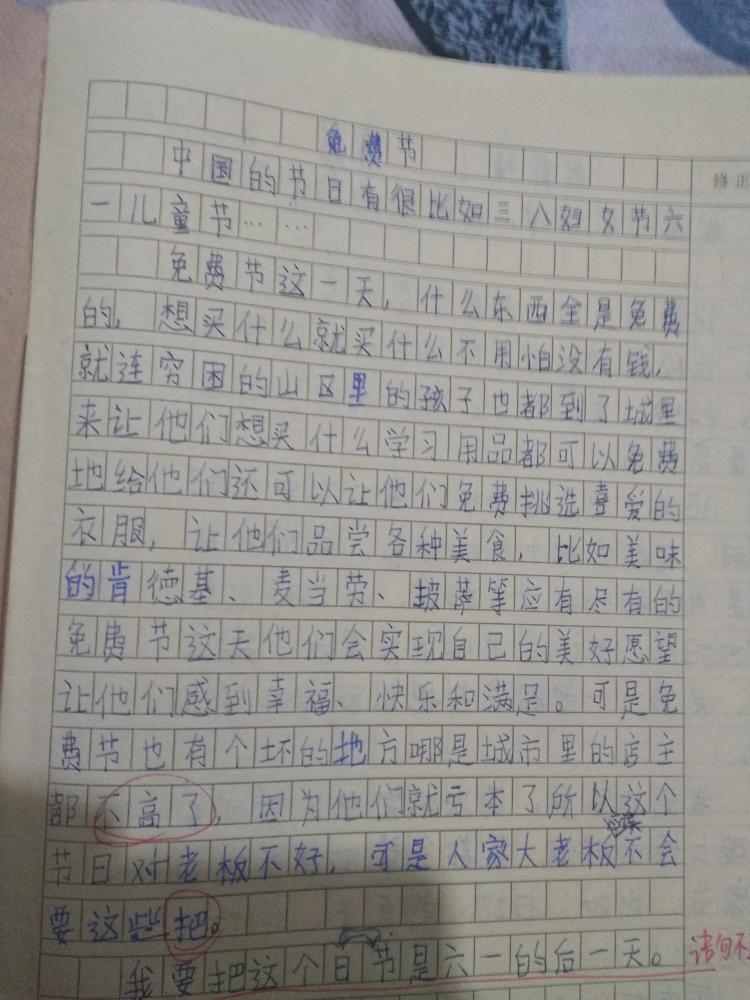 免费节
中国的节日有很比如三八妇女节六
一儿童节……
免费节这一天，什么东西全是免费
的，想买什么就买什么不用怕没有钱，
就连穷困的山区里的孩子也都到了城里
来让他们想买什么学习用品都可以免费
地给他们还可以让他们免费挑选喜爱的
衣服，让他们品尝各种美食，比如美味
的肯德基、麦当劳、披萨等应有尽有的
免费节这天他们会实现自己的美好愿望
让他们感到幸福、快乐和满足。可是免
费节也有个坏的地方哪是城市里的店主
都不高了，因为他们就亏本了所以这个
节日对老板不好，可是人家大老板不会
要这些把。
我要把这个日节是六一的后一天。
修正
语句不